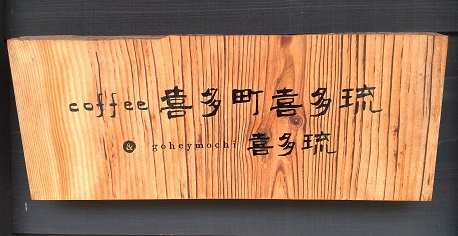 coffee 喜多町喜多琉
& goheymochi 喜多琉